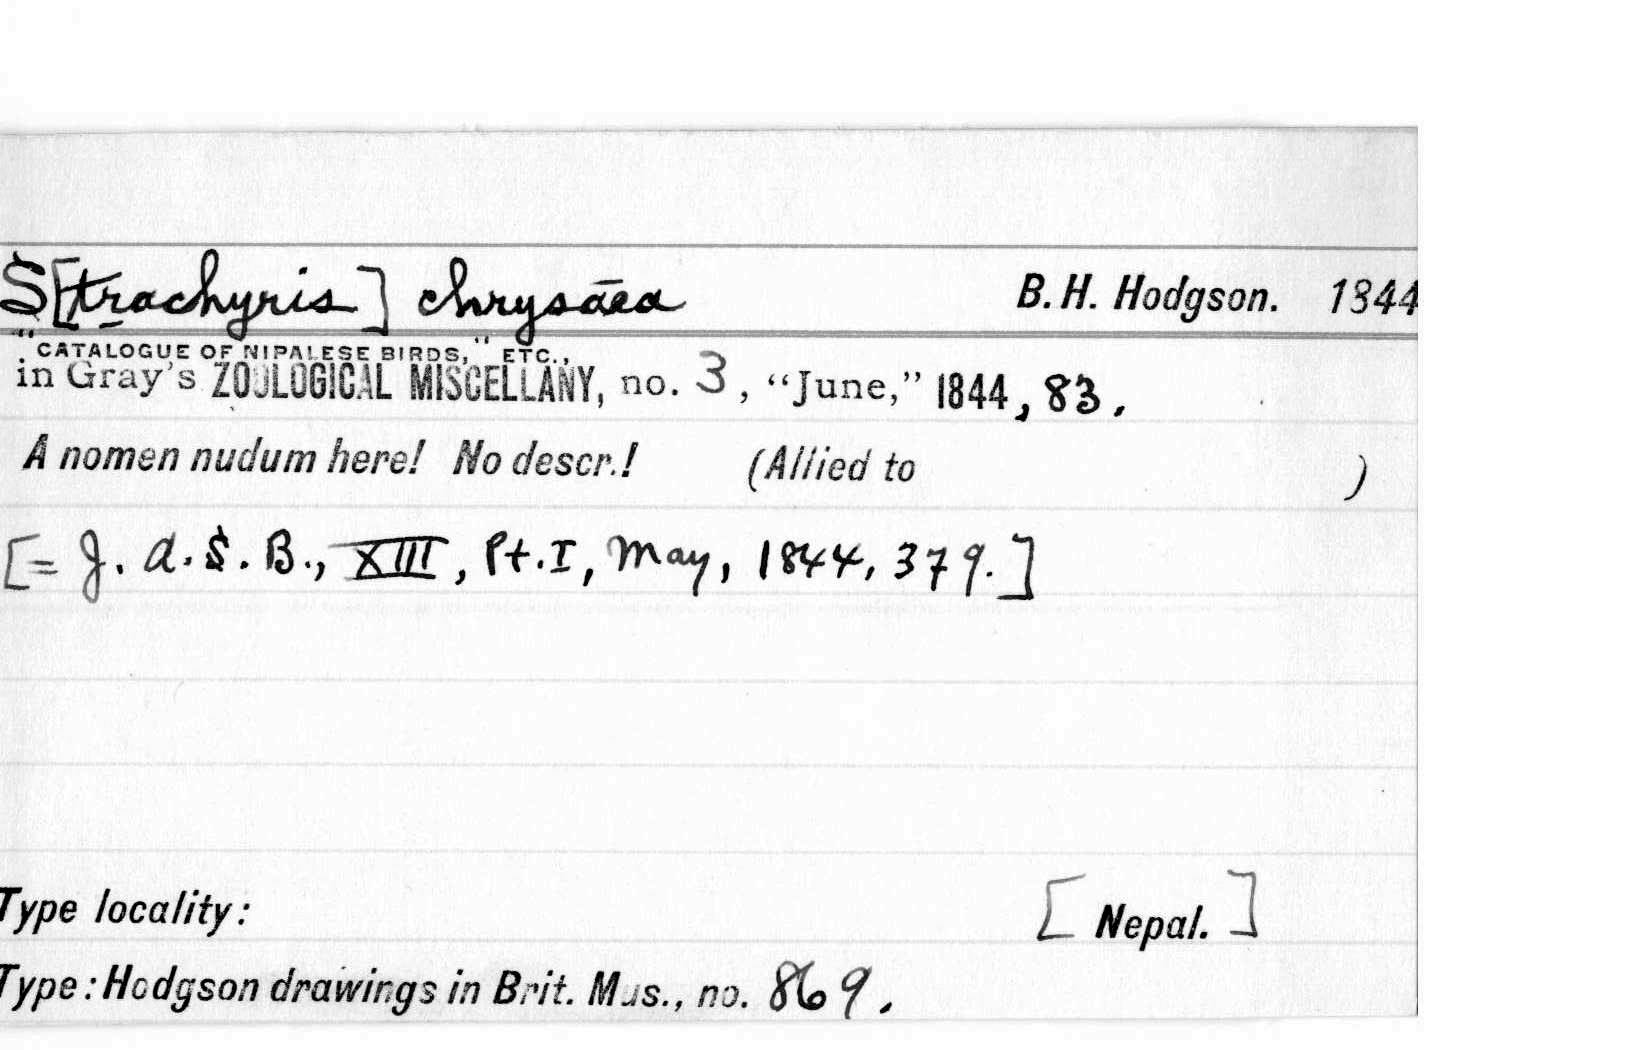 S[trachyris] chrysæa B. H. Hodgson. 1844
"CATALOGUE OF NIPALESE BIRDS," ETC.,
in Gray's ZOOLOGICAL MISCELLANY, no. 3, "June," 1844, 83.
A nomen nudum here! No descr.! (Allied to )
[= J. A. S. B., XIII, Pt. I, May, 1844, 379.]
Type locality: [Nepal.]
Type: Hodgson drawings in Brit. Mus., no. 869.